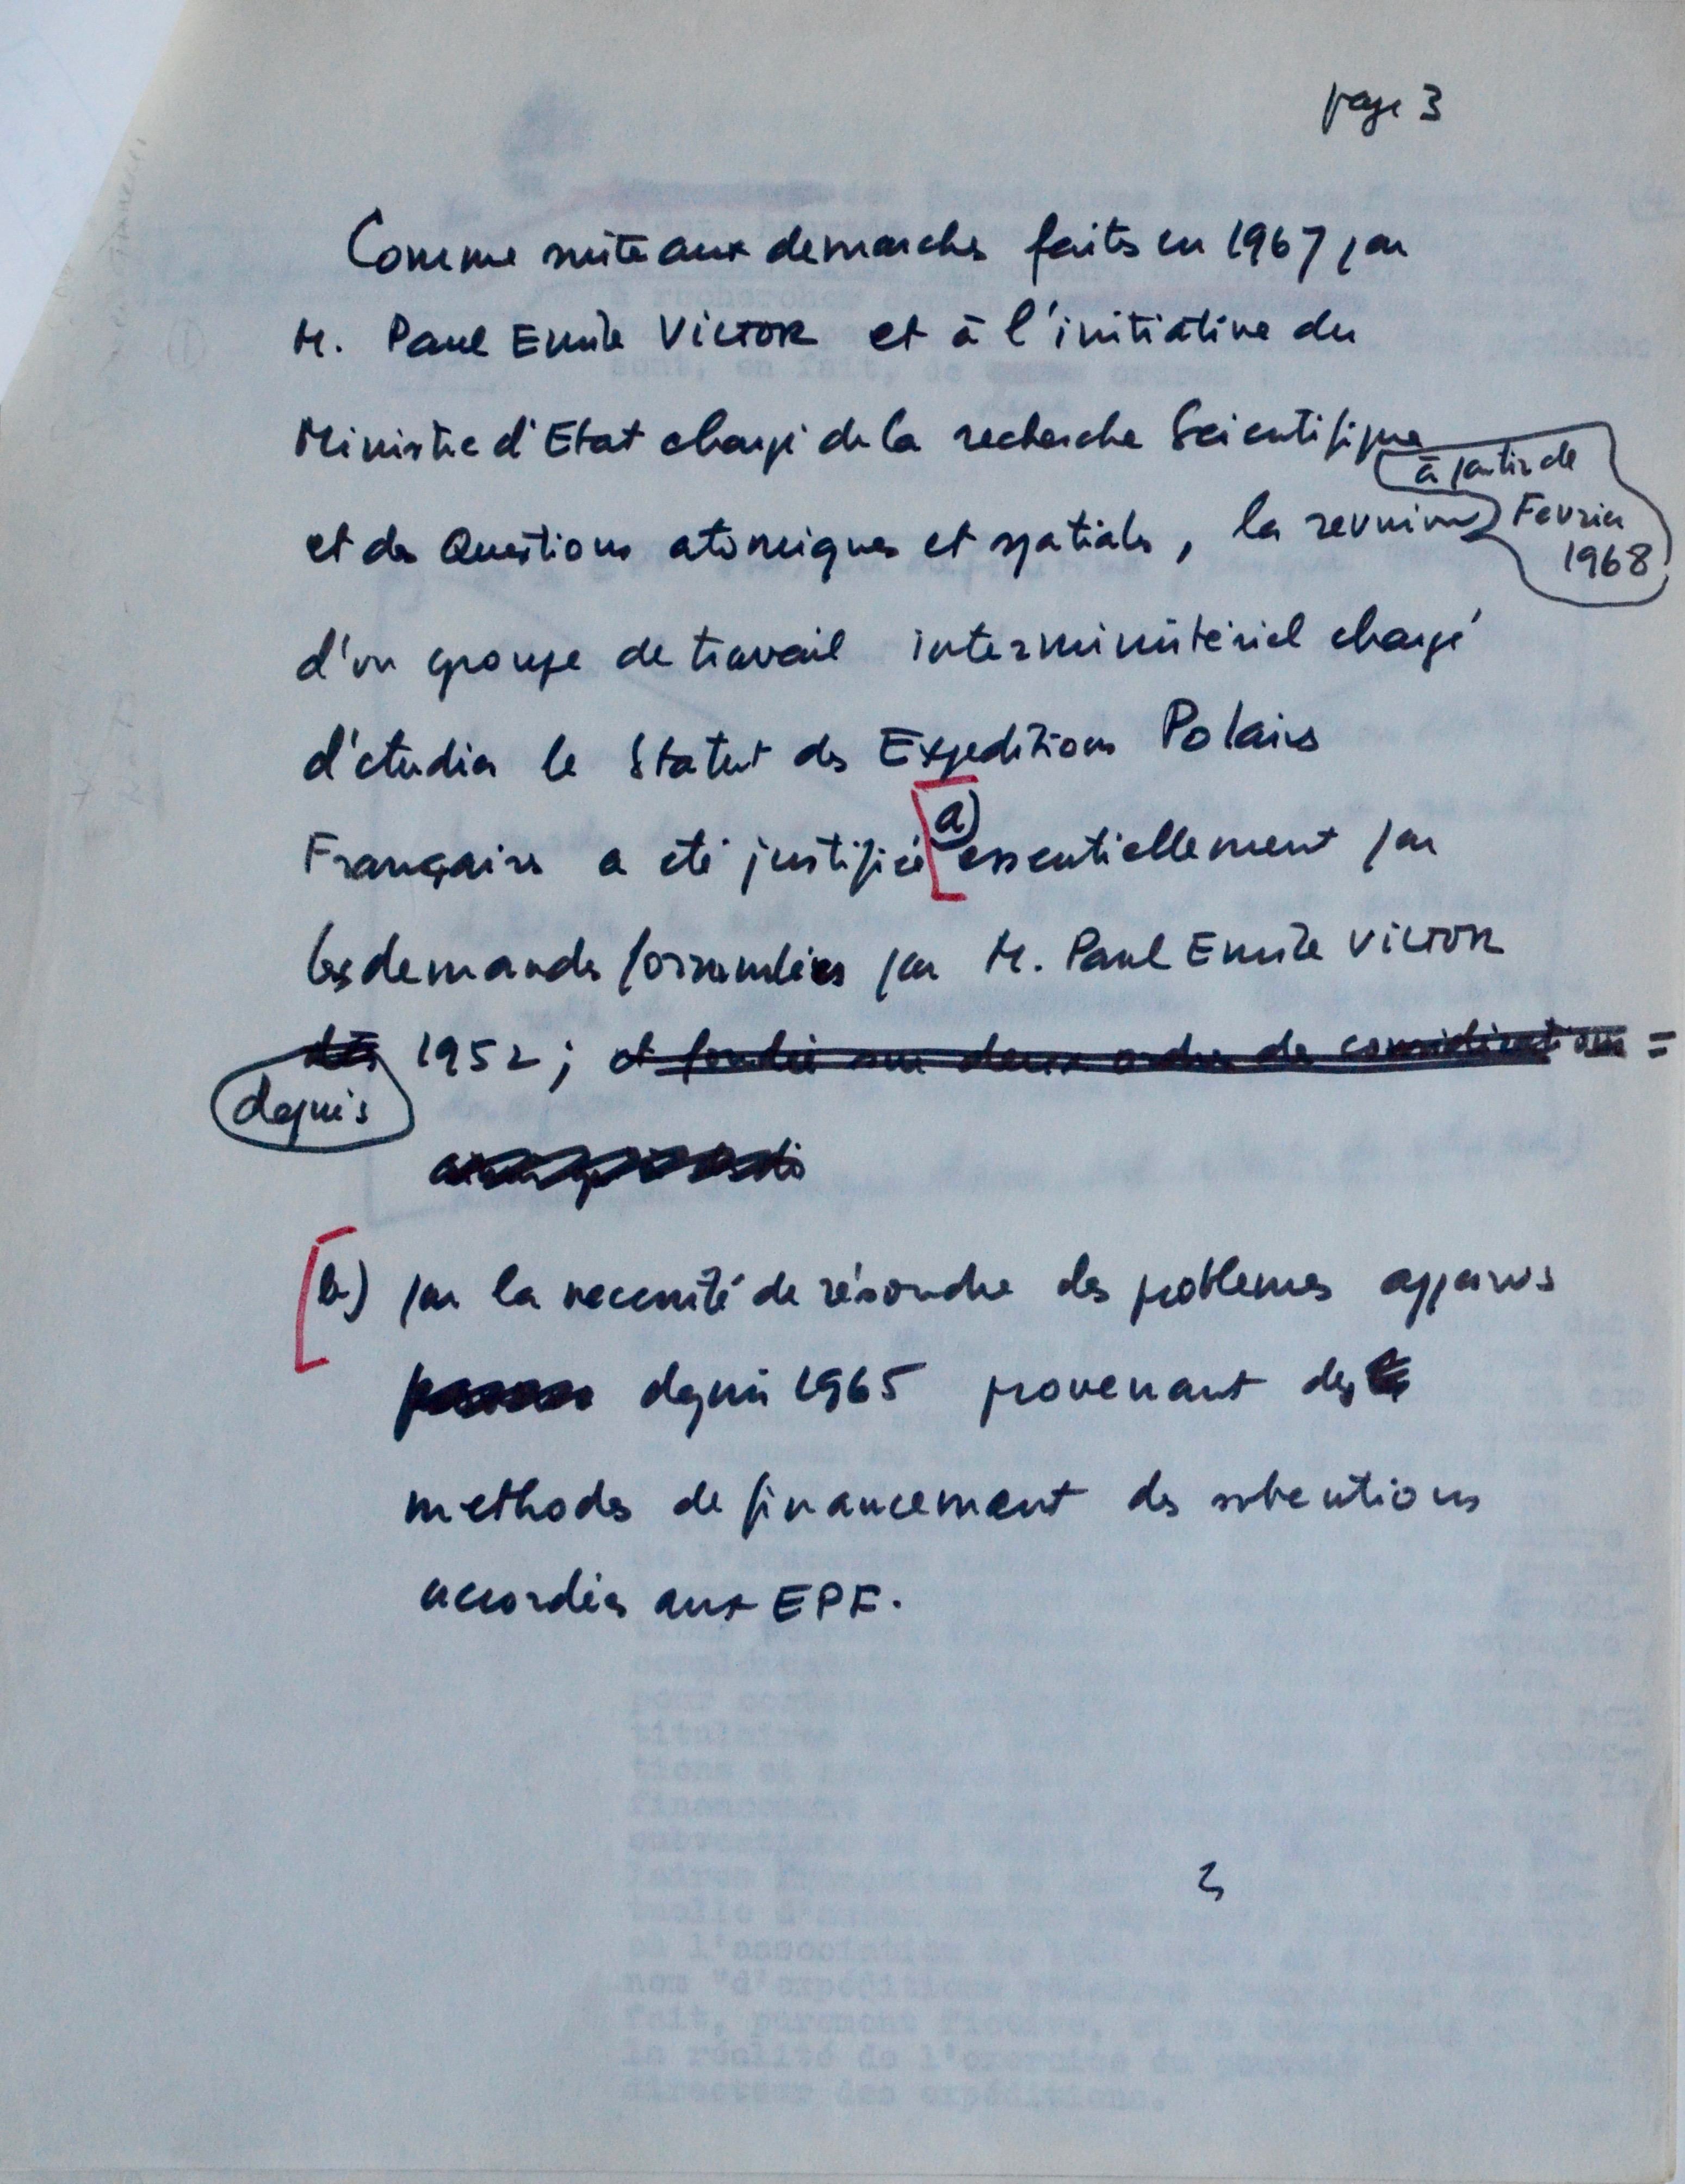 page 3
Comme suite aux demarches faites en 1967 par
M. Paul Emile VICTOR et à l'initiative du
Ministre d'Etat chargé de la recherche Scientifique
et des Questions atomiques et spatiales, la reunion
à partir de
Fevrier
1968
d'un groupe de travail interministériel chargé
d'etudier le Statut des Expeditions Polaires
Françaises a eté justifiée a) essentiellement par
les demandes formulées par M. Paul Emile VICTOR
dès 1952 ; et fondée sur deux ordres de considérations =
depuis
b) par la necessité de résoudre des problemes apparus
depuis 1965 provenant des
methodes de financement des subventions
accordées aux EPF.
3